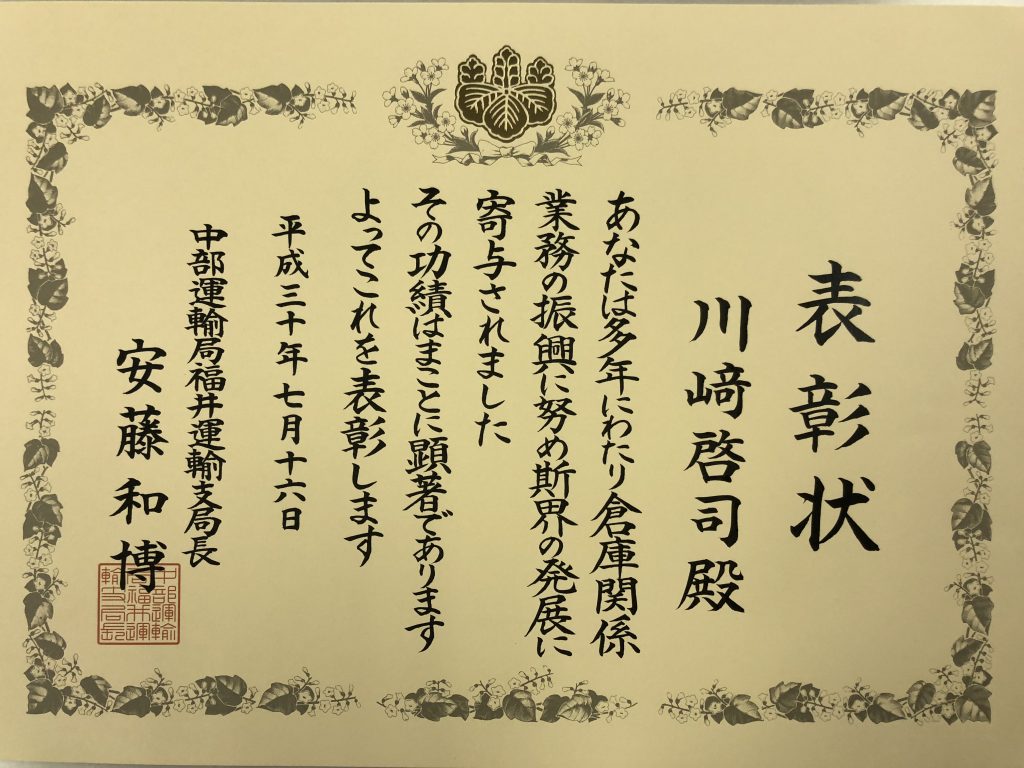 表彰状
川﨑啓司殿
あなたは多年にわたり倉庫関係
業務の振興に努め斯界の発展に
寄与されました
その功績はまことに顕著であります
よってこれを表彰します
平成三十年七月十六日
中部運輸局福井運輸支局長
安藤和博
中部運輸
局福井運
輸支局長